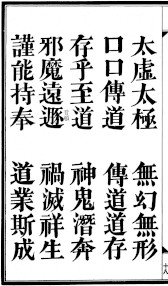 太虛太極　無幻無形
口口傳道　傳道道存
存乎至道　神鬼潛奔
邪魔遠遯　禍滅祥生
謹能持奉　道業斯成
十八